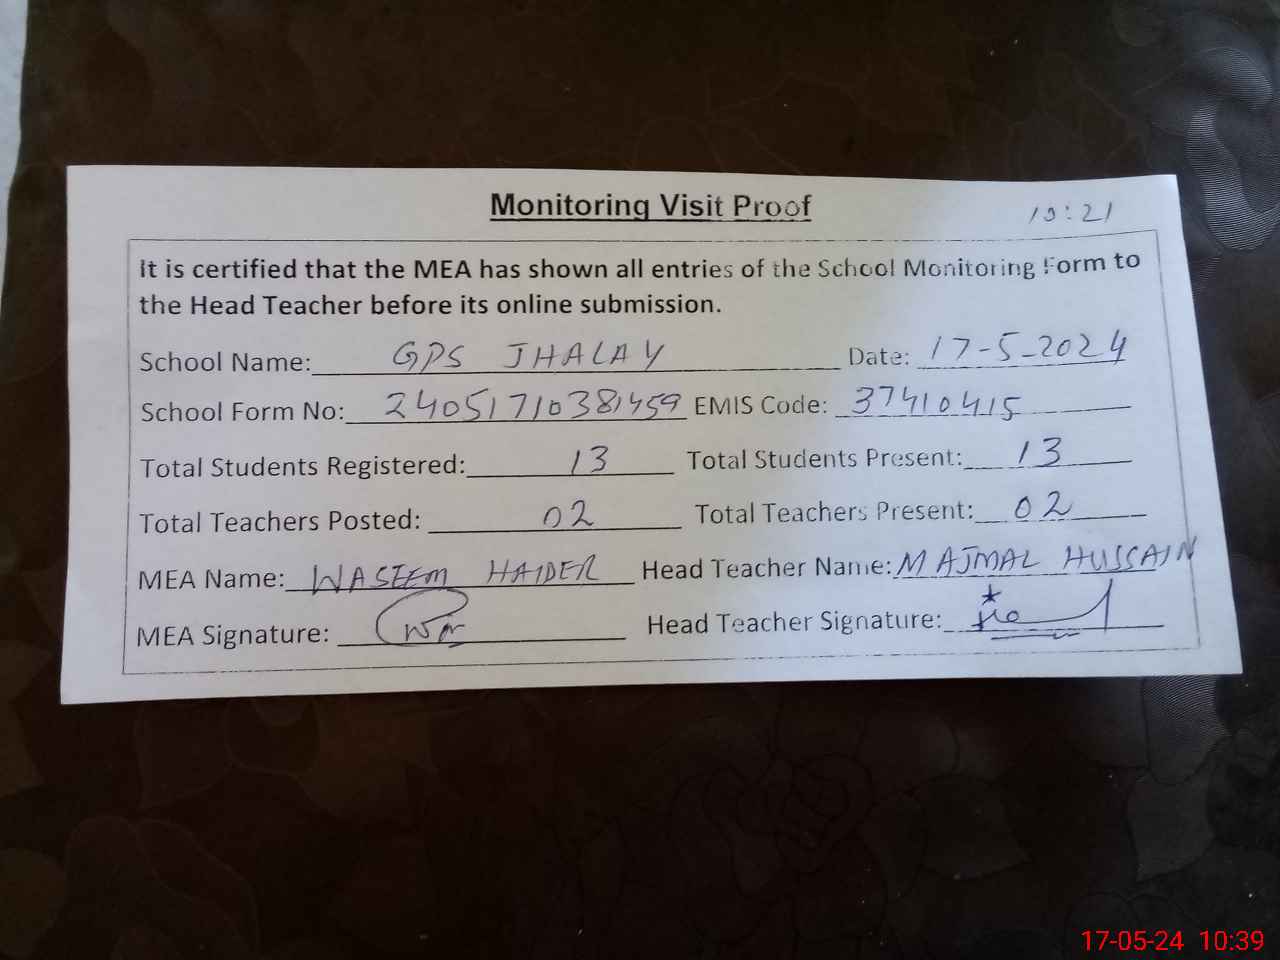 Monitoring Visit Proof
10:21
It is certified that the MEA has shown all entries of the School Monitoring Form to
the Head Teacher before its online submission.
School Name: GPS JHALAY Date: 17-5-2024
School Form No: 24051710381459 EMIS Code: 37410415
Total Students Registered: 13 Total Students Present: 13
Total Teachers Posted: 02 Total Teachers Present: 02
MEA Name: WASEEM HAIDER Head Teacher Name: M AJMAL HUSSAIN
MEA Signature: Head Teacher Signature:
17-05-24 10:39